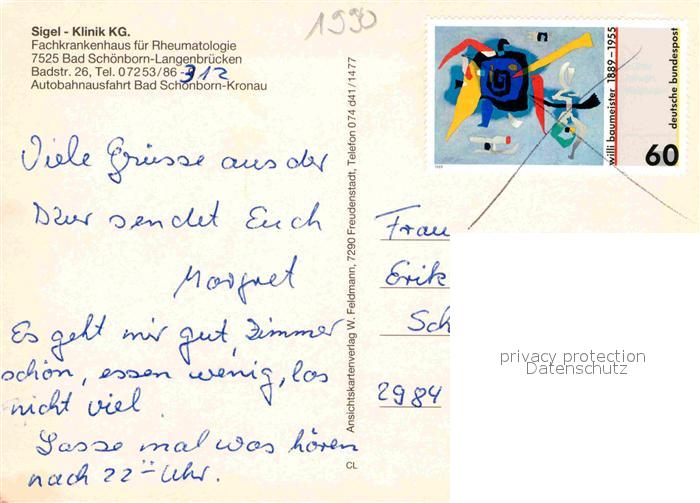 1990
Sigel - Klinik KG.
Fachkrankenhaus für Rheumatologie
7525 Bad Schönborn-Langenbrücken
Badstr. 26, Tel. 07253/86 - 312
Autobahnausfahrt Bad Schönborn-Kronau
willi baumeister 1889-1955
deutsche bundespost
60
1989
Viele Grüsse aus der
Kur sendet Euch
Margret
Es geht mir gut, Zimmer
schön, essen wenig, los
nicht viel.
Lasse mal was hören
nach 22 Uhr.
Ansichtskartenverlag W. Feldmann, 7290 Freudenstadt, Telefon 074 d41/1477
CL
Frau
Erik
Sch
2984
privacy protection
Datenschutz